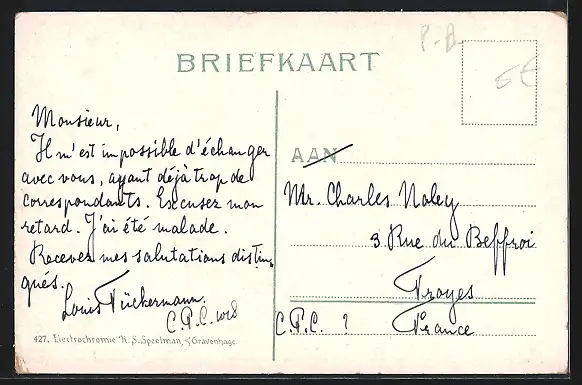 P-B
5€
BRIEFKAART
Monsieur,
Il m'est impossible d'échanger
avec vous, ayant déjà trop de
correspondants. Excusez mon
retard. J'ai été malade.
Recevez mes salutations distin-
gués.
Louis Tückermann.
C.P.C.
AAN
Mr. Charles Noley
3 Rue du Beffroi
Troyes
C.P.C. ? France
427. Electrochromie "H. S. Speelman, 's Gravenhage.